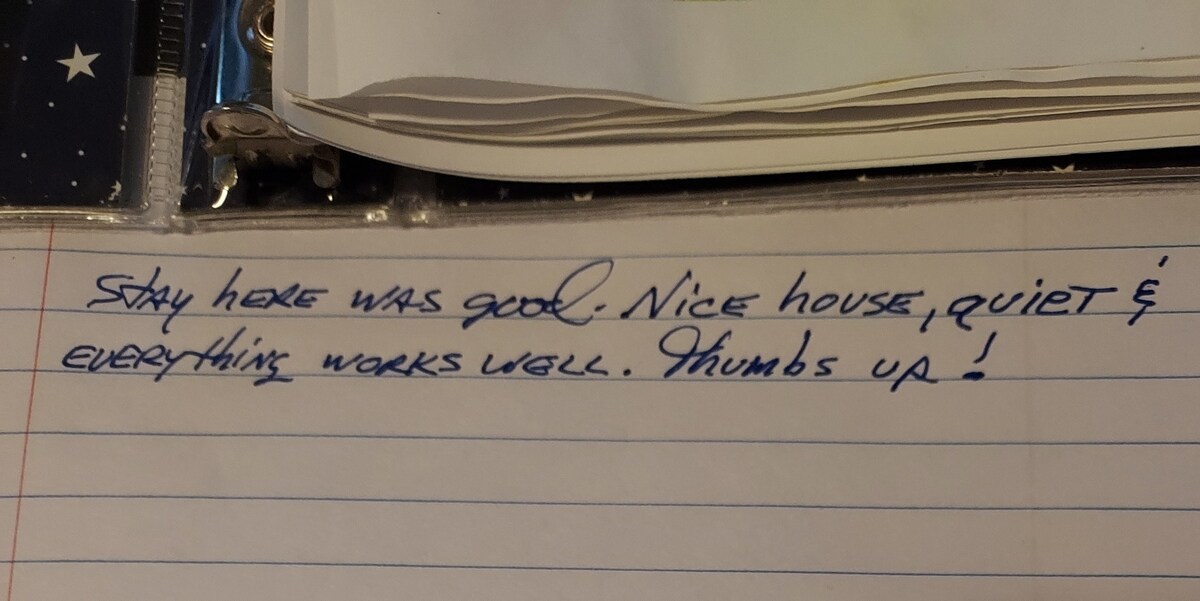 Stay here was good. Nice house, quiet &
everything works well. Thumbs up!